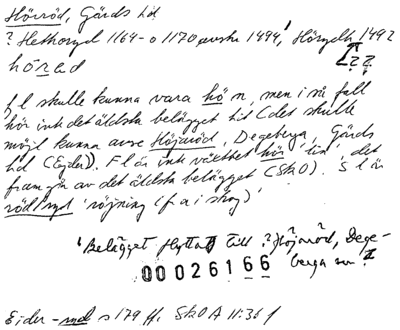 Hörröd, Gärds hd
? Hethoryd 1164-o 1170 avskr 1494, Höryelt 1492
hörad
[??
fl skulle kunna vara hö n, men i så fall
hör ink det äldsta belägget hit (det skulle
möjl kunna avse Höjaröd, Degeberga, Gärds
hd (Ejder)). F l är ink växtbet hör 'lin' det
framgår av det äldsta belägget (SkO). S l är
röd/ryd 'röjning (f a i skog)'
'Belägget flyttat till ? Höjaröd, Dege-
berga sn'
00026166
Ejder -ryd s 179 ff, SkO A II:36 f